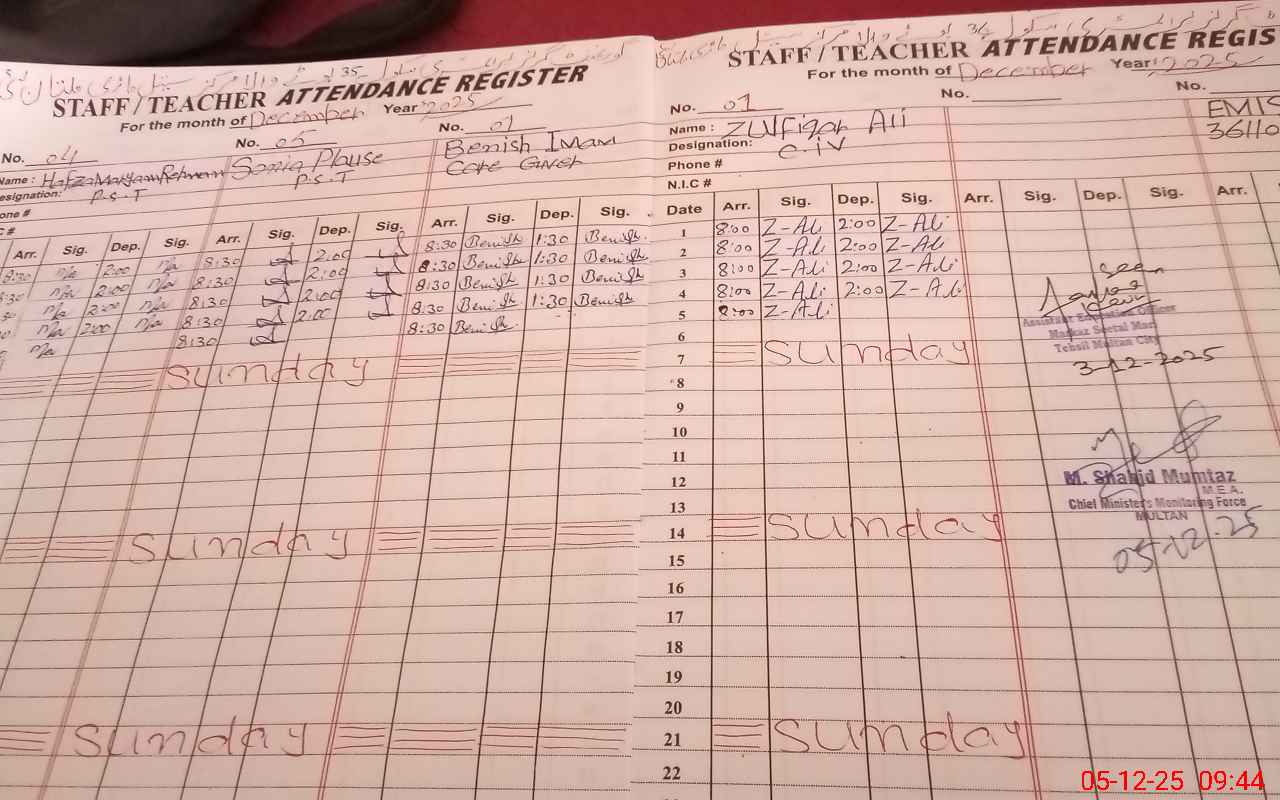 STAFF/TEACHER ATTENDANCE REGISTER
For the month of December Year 2025
No. 04 No. 05 No. 01
Name: Hafza Maryam Rehman Sonia Plause Benish Imam
Designation: P.S.T P.S.T Care Giver
Arr. Sig. Dep. Sig. Arr. Sig. Dep. Sig. Arr. Sig. Dep. Sig.
8:30 2:00 8:30 2:00 8:30 Benish 1:30 Benish
8:30 2:00 8:30 2:00 8:30 Benish 1:30 Benish
2:00 8:30 2:00 8:30 Benish 1:30 Benish
2:00 8:30 2:00 8:30 Benish 1:30 Benish
8:30 8:30 Benish
Sunday
Sunday
Sunday
STAFF/TEACHER ATTENDANCE REGIS
For the month of December Year 2025
No. 01 No. No.
Name: Zulfiqar Ali EMIS
Designation: C.iv 36110
Phone #
N.I.C #
Date Arr. Sig. Dep. Sig. Arr. Sig. Dep. Sig. Arr.
1 8:00 Z-Ali 2:00 Z-Ali
2 8:00 Z-Ali 2:00 Z-Ali
3 8:00 Z-Ali 2:00 Z-Ali
4 8:00 Z-Ali 2:00 Z-Ali
5 8:00 Z-Ali
6
7 Sunday
8
9
10
11
12
13
14 Sunday
15
16
17
18
19
20
21 Sunday
22
Seen
Assistant Education Officer
Markaz
Tehsil Multan City
3-12-2025
M. Shahid Mumtaz
M.E.A.
Chief Minister's Monitoring Force
MULTAN
05-12-25
05-12-25 09:44